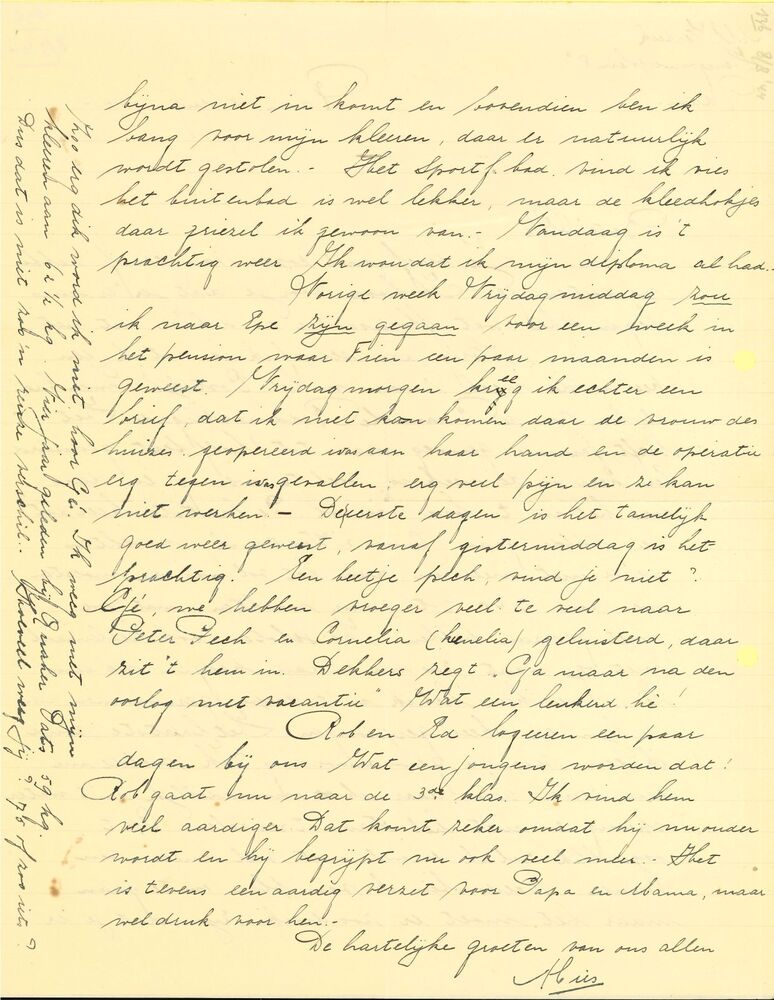 bijna niet in komt en bovendien ben ik
bang voor mijn kleeren, daar er natuurlijk
wordt gestolen.- Het Sportf.bad. vind ik vies
het buitenbad is wel lekker, maar de kleedhokjes
daar griezel ik gewoon van.- Vandaag is 't
prachtig weer Ik wou dat ik mijn diploma al had..
Vorige week Vrijdagmiddag zou
ik naar Epe zijn gegaan voor een week in
het pension waar Fien een paar maanden is
geweest. Vrijdagmorgen kreeg ik echter een
brief, dat ik niet kon komen daar de vrouw des
huizes geopereerd was aan haar hand en de operatie
erg tegen was gevallen, erg veel pijn en ze kan
niet werken.- De eerste dagen is het tamelijk
goed weer geweest, vanaf gistermiddag is het
prachtig. Een beetje pech, vind je niet?
Gé, we hebben vroeger veel te veel naar
Peter Pech en Cornelia (henelia) geluisterd, daar
zit 't hem in. Dekkers zegt „Ga maar na den
oorlog met vacantie" Wat een leukerd hè!
Rob en Ed logeeren een paar
dagen bij ons. Wat een jongens worden dat!
Rob gaat nu naar de 3de klas. Ik vind hem
veel aardiger. Dat komt zeker omdat hij nu ouder
wordt en hij begrijpt nu ook veel meer.- Het
is tevens een aardig verzet voor Papa en Mama, maar
wel druk voor hen.-
De hartelijke groeten van ons allen
Mies
Zoo erg dik word ik niet hoor Gé. Ik weeg met mijn
kleeren aan 62½ kg. Vier jaar geleden bij Quaker Oats 59 kg.
Dus dat is niet zoo'n reuze verschil.. Hoeveel weeg jij? 75 of zoo iets?